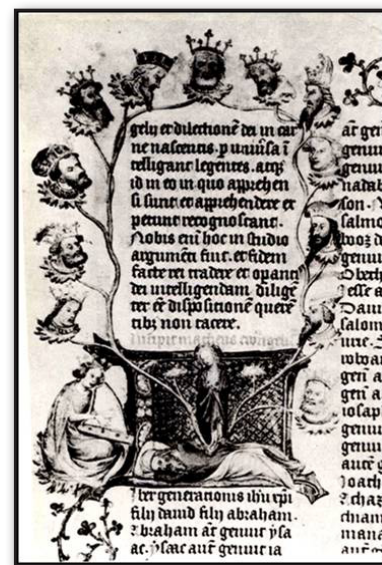 gelij et dilectionē dei in car
ne nascentis. p uniūsa ī
telligant legentes. atq;
id in eo in quo apprehen
si sunt et apprehendere et
petunt recognoscant.
Nobis eni hoc in studio
argumēti fuit. et fidem
facte rei tradere et opantis
dei intelligendam dilige
ter ēē dispositionē querē
tibz non tacere.
Incipit matheus
Iber generationis ihu xpi
filij dauid filij abraham.
Abraham āt genuit ysa
ac. ysaac autē genuit ia
āt gen
genuit
genuit
nada
son.
salmo
booz d
genuit
Obeth
Jesse a
Dauid
salom
urie.
roboa
geñ a
geñ a
iosap
genuit
genuit
autē g
Joath
achaz
chiam
mana